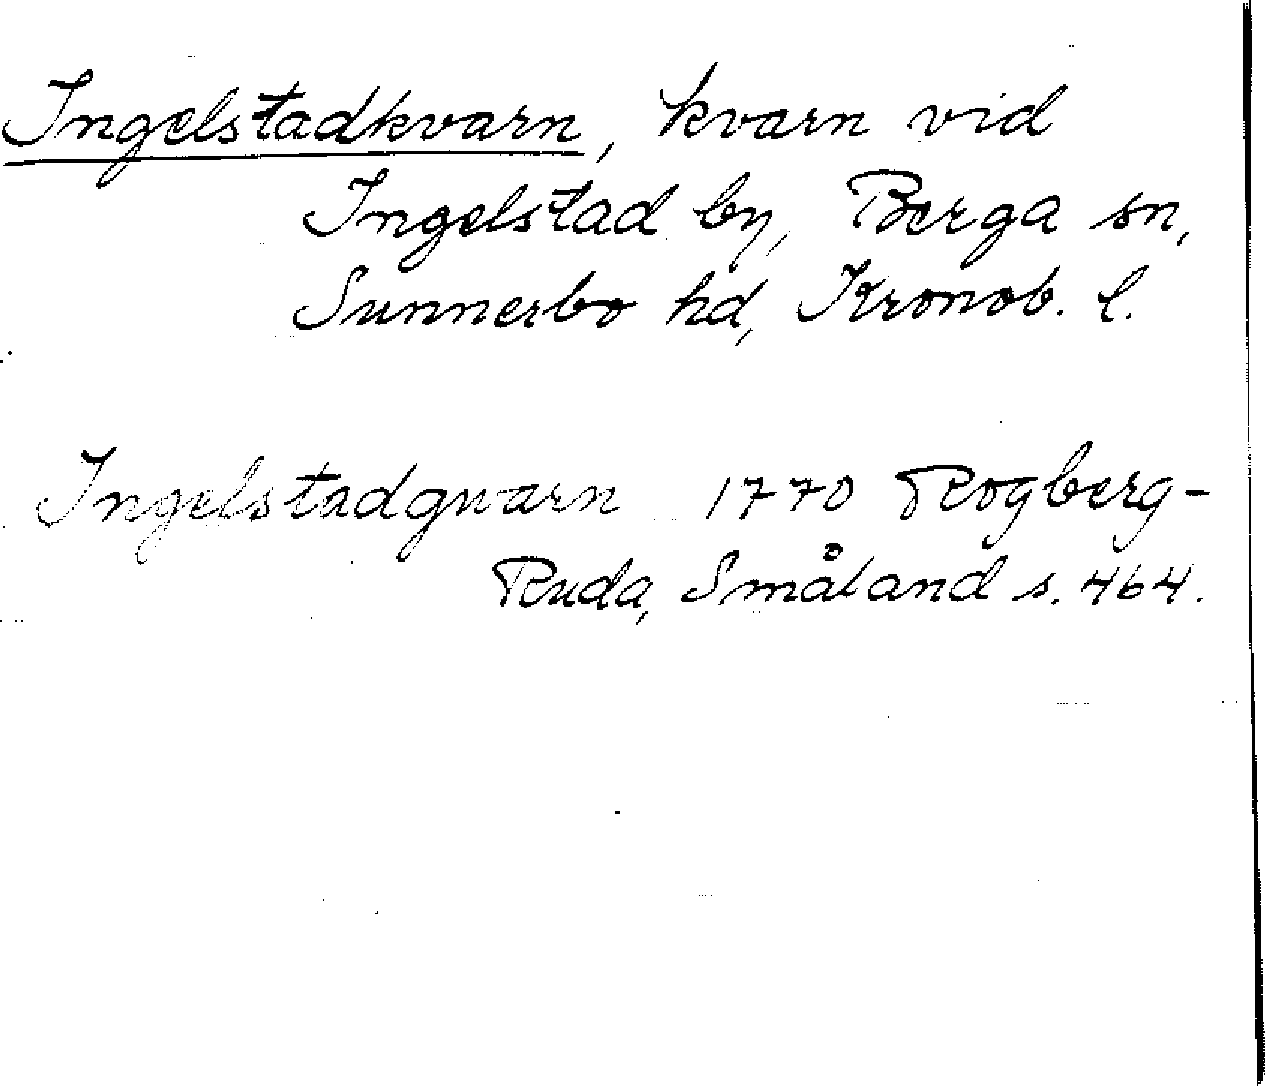 Ingelstadkvarn, kvarn vid
Ingelstad by, Berga sn,
Sunnerbo hd, Kronob. l.
Ingelstadqvarn 1770 Rogberg-
Ruda, Småland s. 464.